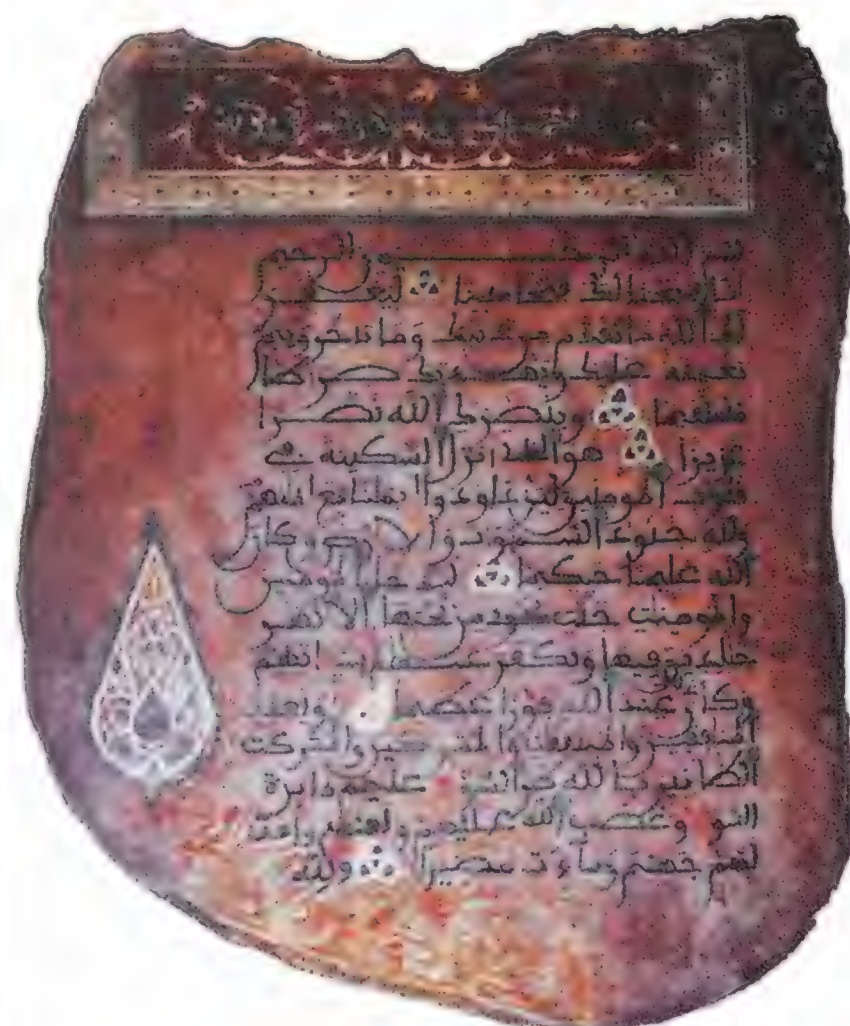 بسم الله الرحمن الرحيم
إنا فتحنا لك فتحا مبينا ليغفر
لك الله ما تقدم من ذنبك وما تأخر ويتم
نعمته عليك ويهديك صرطا
مستقيما وينصرك الله نصرا
عزيزا هو الذي انزل السكينة في
قلوب المومنين ليزدادوا ايمنا مع ايمنهم
ولله جنود السموت والارض وكان
الله عليما حكيما ليدخل المومنين
والمومنت جنت تجري من تحتها الانهر
خلدين فيها ويكفر عنهم سياتهم
وكان عند الله فوزا عظيما ويعذب
المنفقين والمنفقت والمشركين والمشركت
الظانين بالله ظن السوء عليهم دايرة
السوء وغضب الله عليهم ولعنهم واعد
لهم جهنم وساءت مصيرا ولله